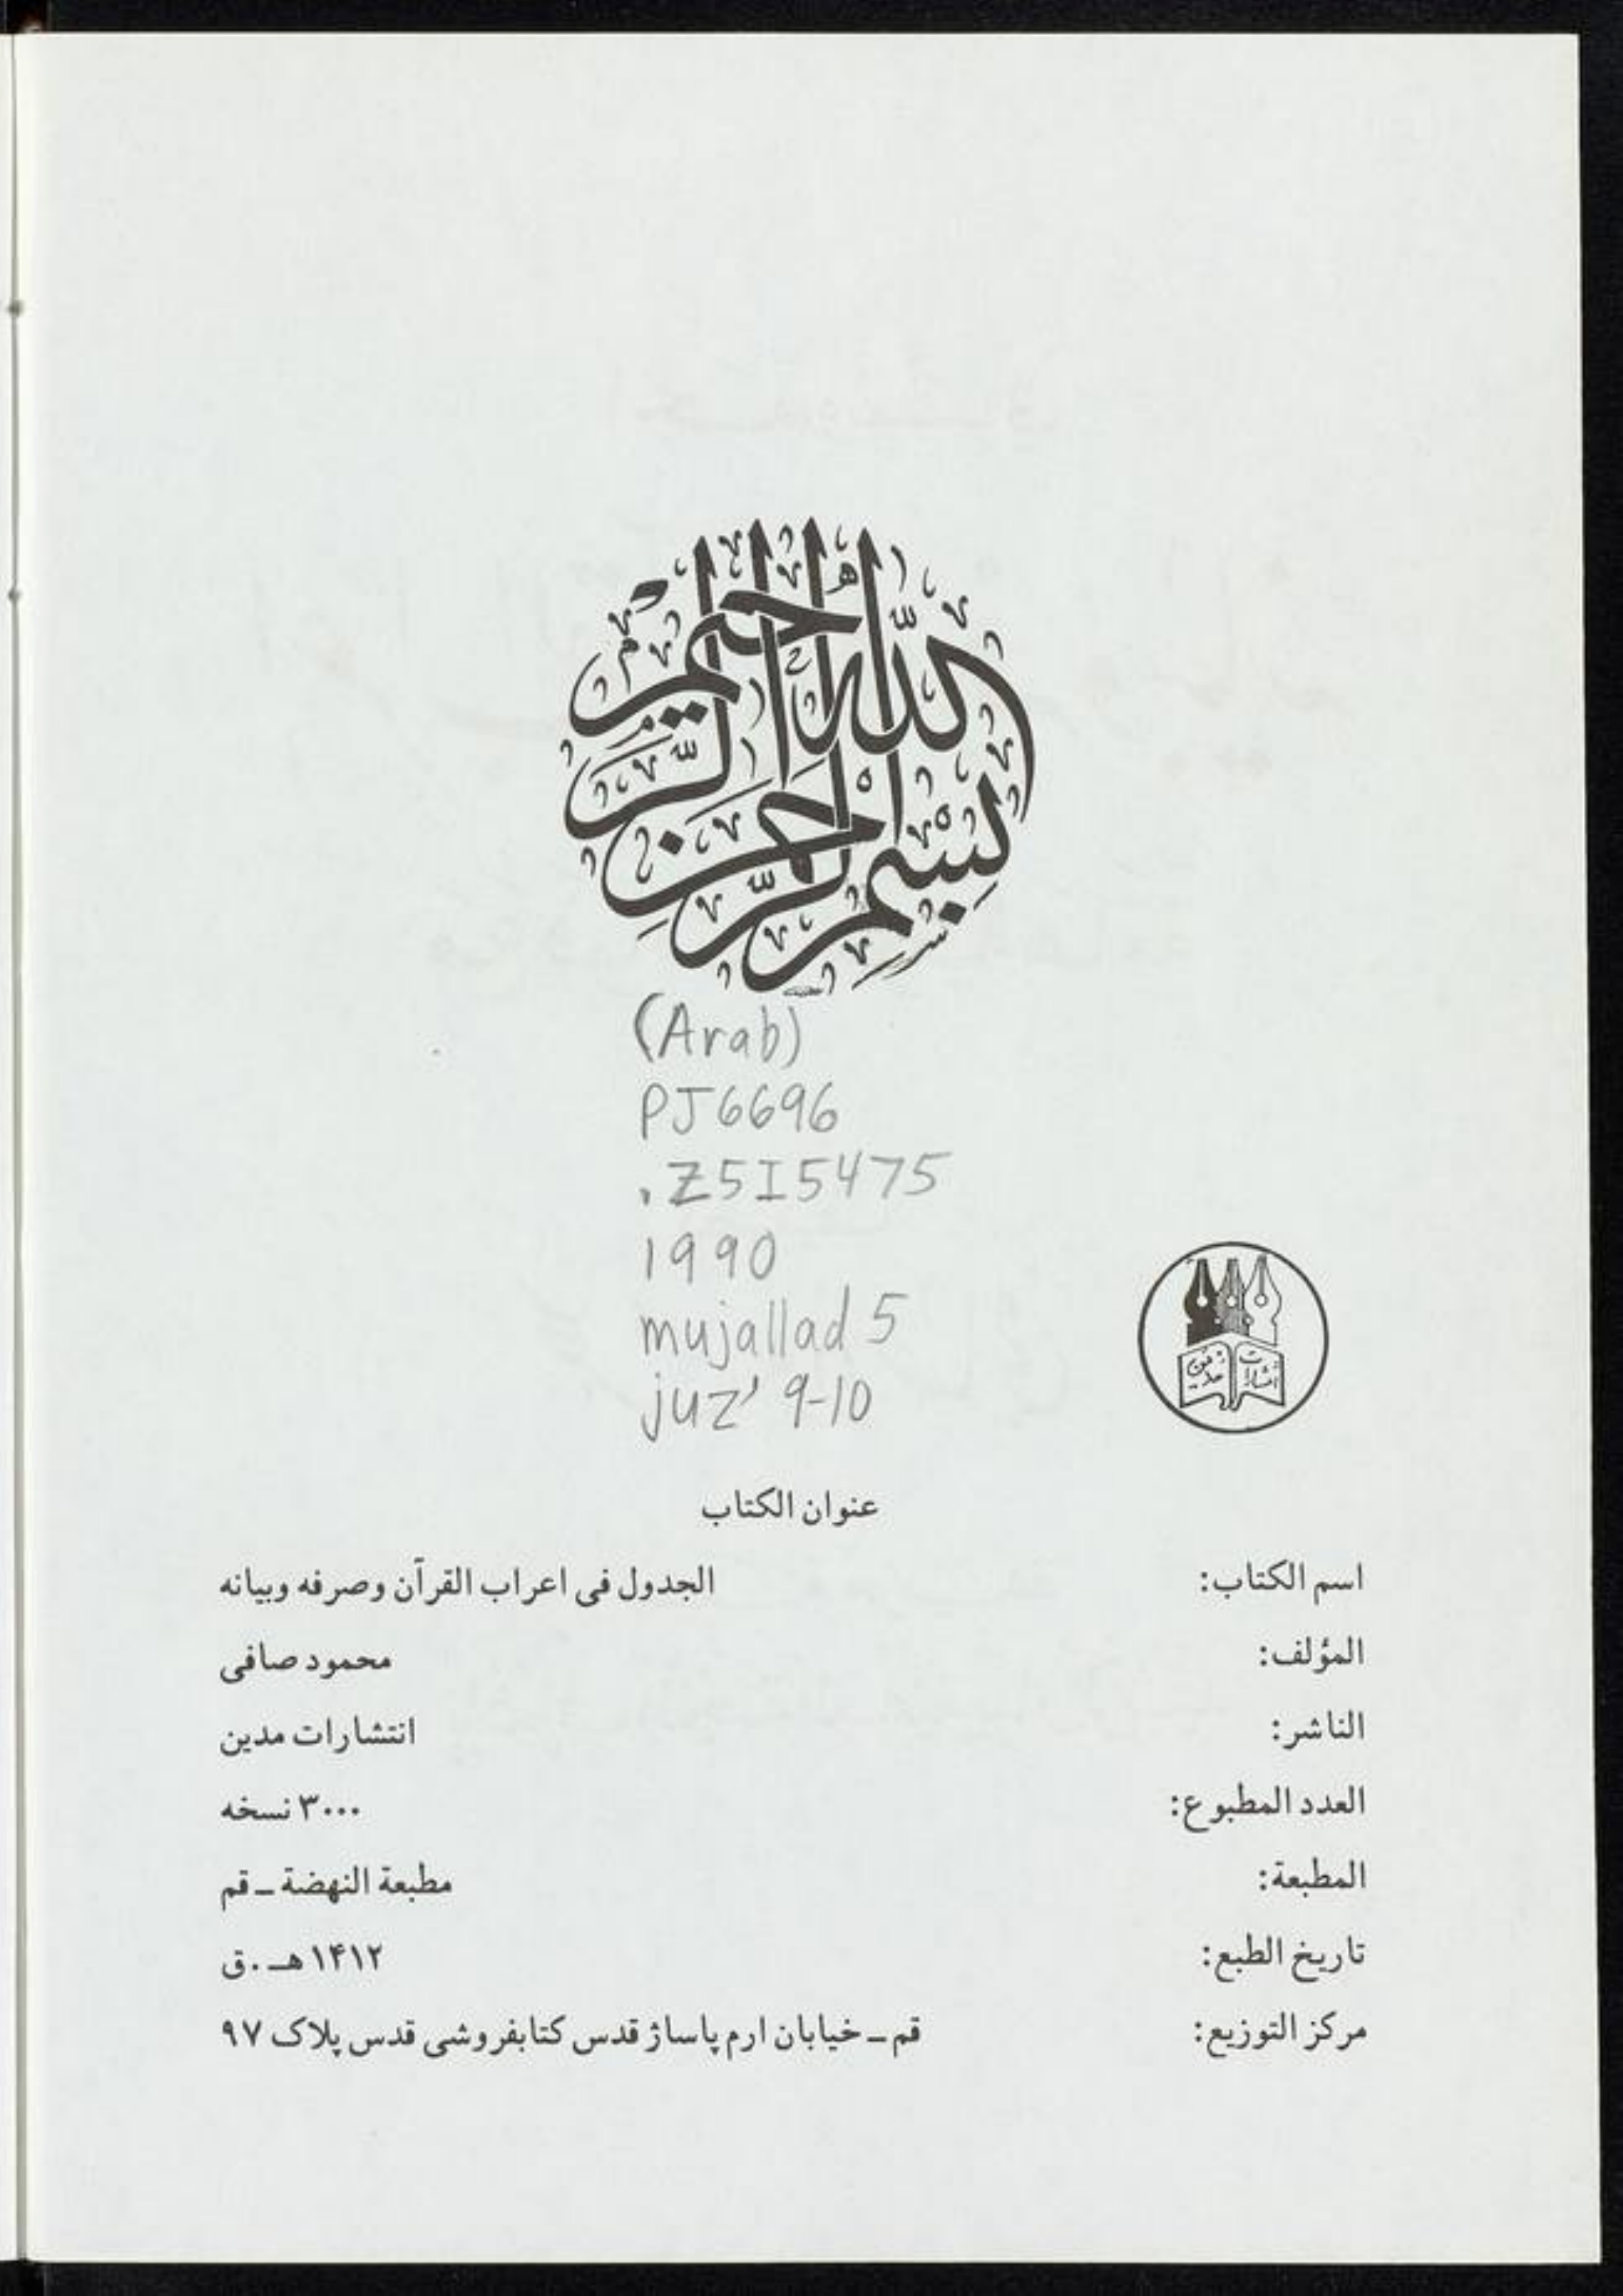 بِسْمِ اللهِ الرَّحْمنِ الرَّحيمِ
(Arab)
PJ6696
.Z5I5475
1990
mujallad 5
juz' 9-10
انتشارات مدين
عنوان الكتاب
اسم الكتاب: الجدول فى اعراب القرآن وصرفه وبيانه
المؤلف: محمود صافى
الناشر: انتشارات مدين
العدد المطبوع: ۳۰۰۰ نسخه
المطبعة: مطبعة النهضة ـ قم
تاريخ الطبع: ۱۴۱۲ هـ . ق
مركز التوزيع: قم ـ خيابان ارم پاساژ قدس كتابفروشى قدس پلاک ۹۷